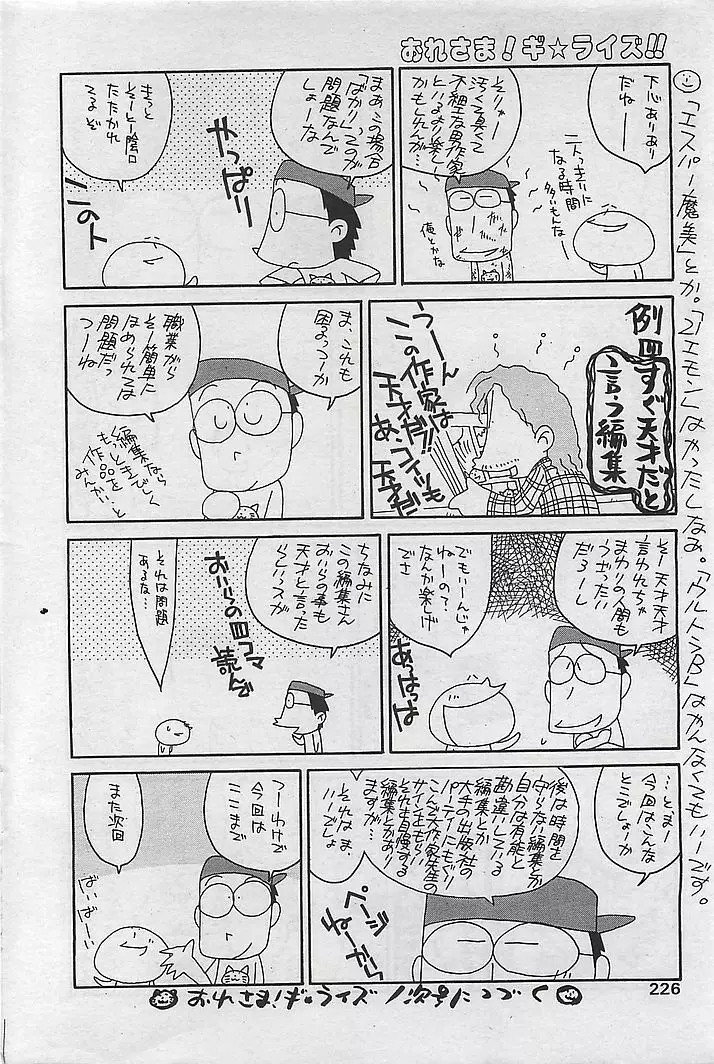 おれさま!ギ☆ライズ!!
「エスパー魔美」とか。「21エモン」はやったしなあ。「ウルトラB」はやんなくてもいーです。
下心ありあり
だねー
二人っきりに
なる時間
多いもんなー
そりゃー
汚くて臭くて
不細工な男作家
といるより楽しい
かもしれんが…
俺とかな
まあこの場合
「ばかり」ってのが
問題なんで
しょーな
やっぱり
きっと
そーとー陰口
たたかれ
てるぞ
このト
例四
すぐ天才だと
言う編集
うーん
この作家は
天才だ!!
あ、コイツも
天才だ
ま、これも
困るっつーか
職業がら
そー簡単に
ほめられては
問題だっ
つーね
編集なら
もっときびしく
作品を
みんかい…と
そー天才天才
言われちゃ
まわりの人間も
うざったい
だろーし
でもいーんじゃ
ねーの?
なんか楽げ
でさ
あっはっは
ちなみに
この編集さん
おいらの事も
天才と言った
らしいっスが
おいらの四コマ
読んで
それは問題
あるな…
…とまー
今回はこんな
とこでしょーか
後は時間を
守らない編集とか
自分は有能と
勘違いしている
編集とか
大手の出版社の
パーティーにもぐり
こんで大作家先生の
サインをもらい
それを自慢する
編集とかあり
ますが…
それはま、
いーでしょ
ページ
ねーから
つーわけで
今回は
ここまで
また次回
ばいばーい
おれさま!ギ☆ライズ/次号につづく
226